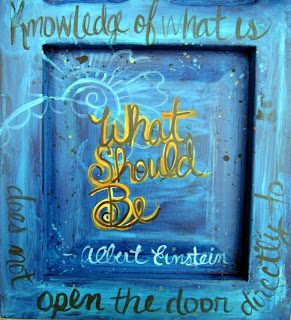 Knowledge of what is
does not
open the door
directly to
What
Should
Be
- Albert Einstein